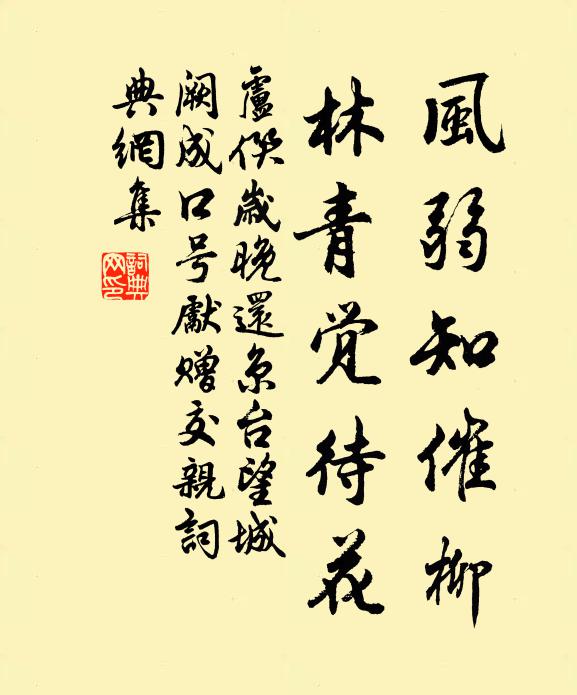 風弱知催柳
林青覚待花
盧僎歲晚還京台望城
闕成口号獻贈交親詞
典網集
詞典网印